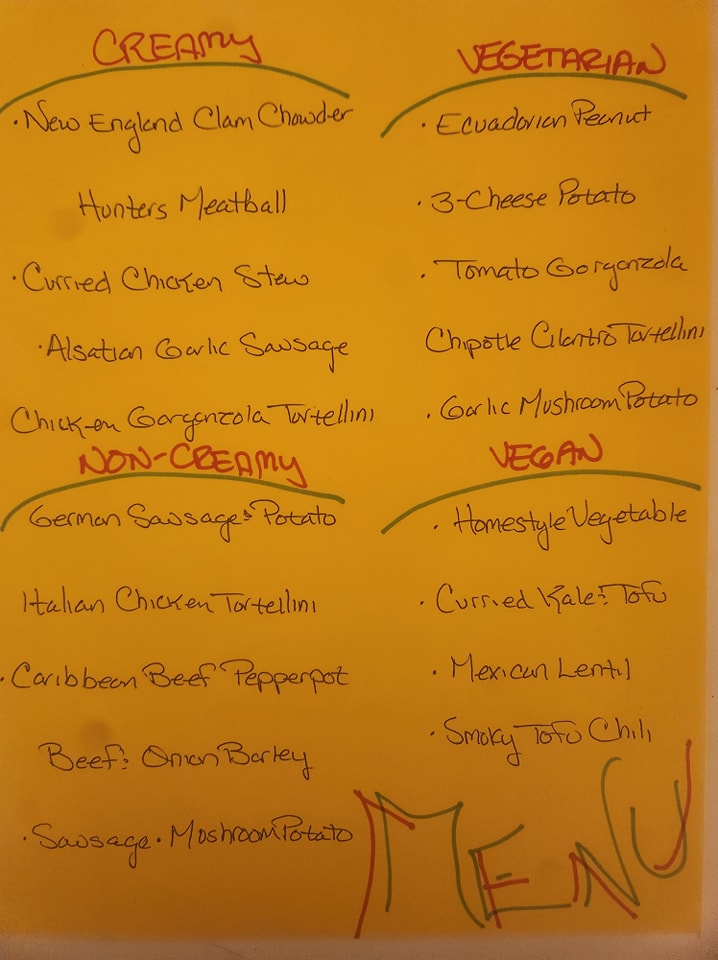 CREAMY
· New England Clam Chowder
Hunters Meatball
· Curried Chicken Stew
· Alsatian Garlic Sausage
Chicken Gorgonzola Tortellini
NON-CREAMY
German Sausage & Potato
Italian Chicken Tortellini
· Caribbean Beef Pepperpot
Beef & Onion Barley
· Sausage · Mushroom Potato
VEGETARIAN
· Ecuadorian Peanut
· 3-Cheese Potato
· Tomato Gorgonzola
Chipotle Cilantro Tortellini
· Garlic Mushroom Potato
VEGAN
· Homestyle Vegetable
· Curried Kale & Tofu
· Mexican Lentil
· Smoky Tofu Chili
MENU